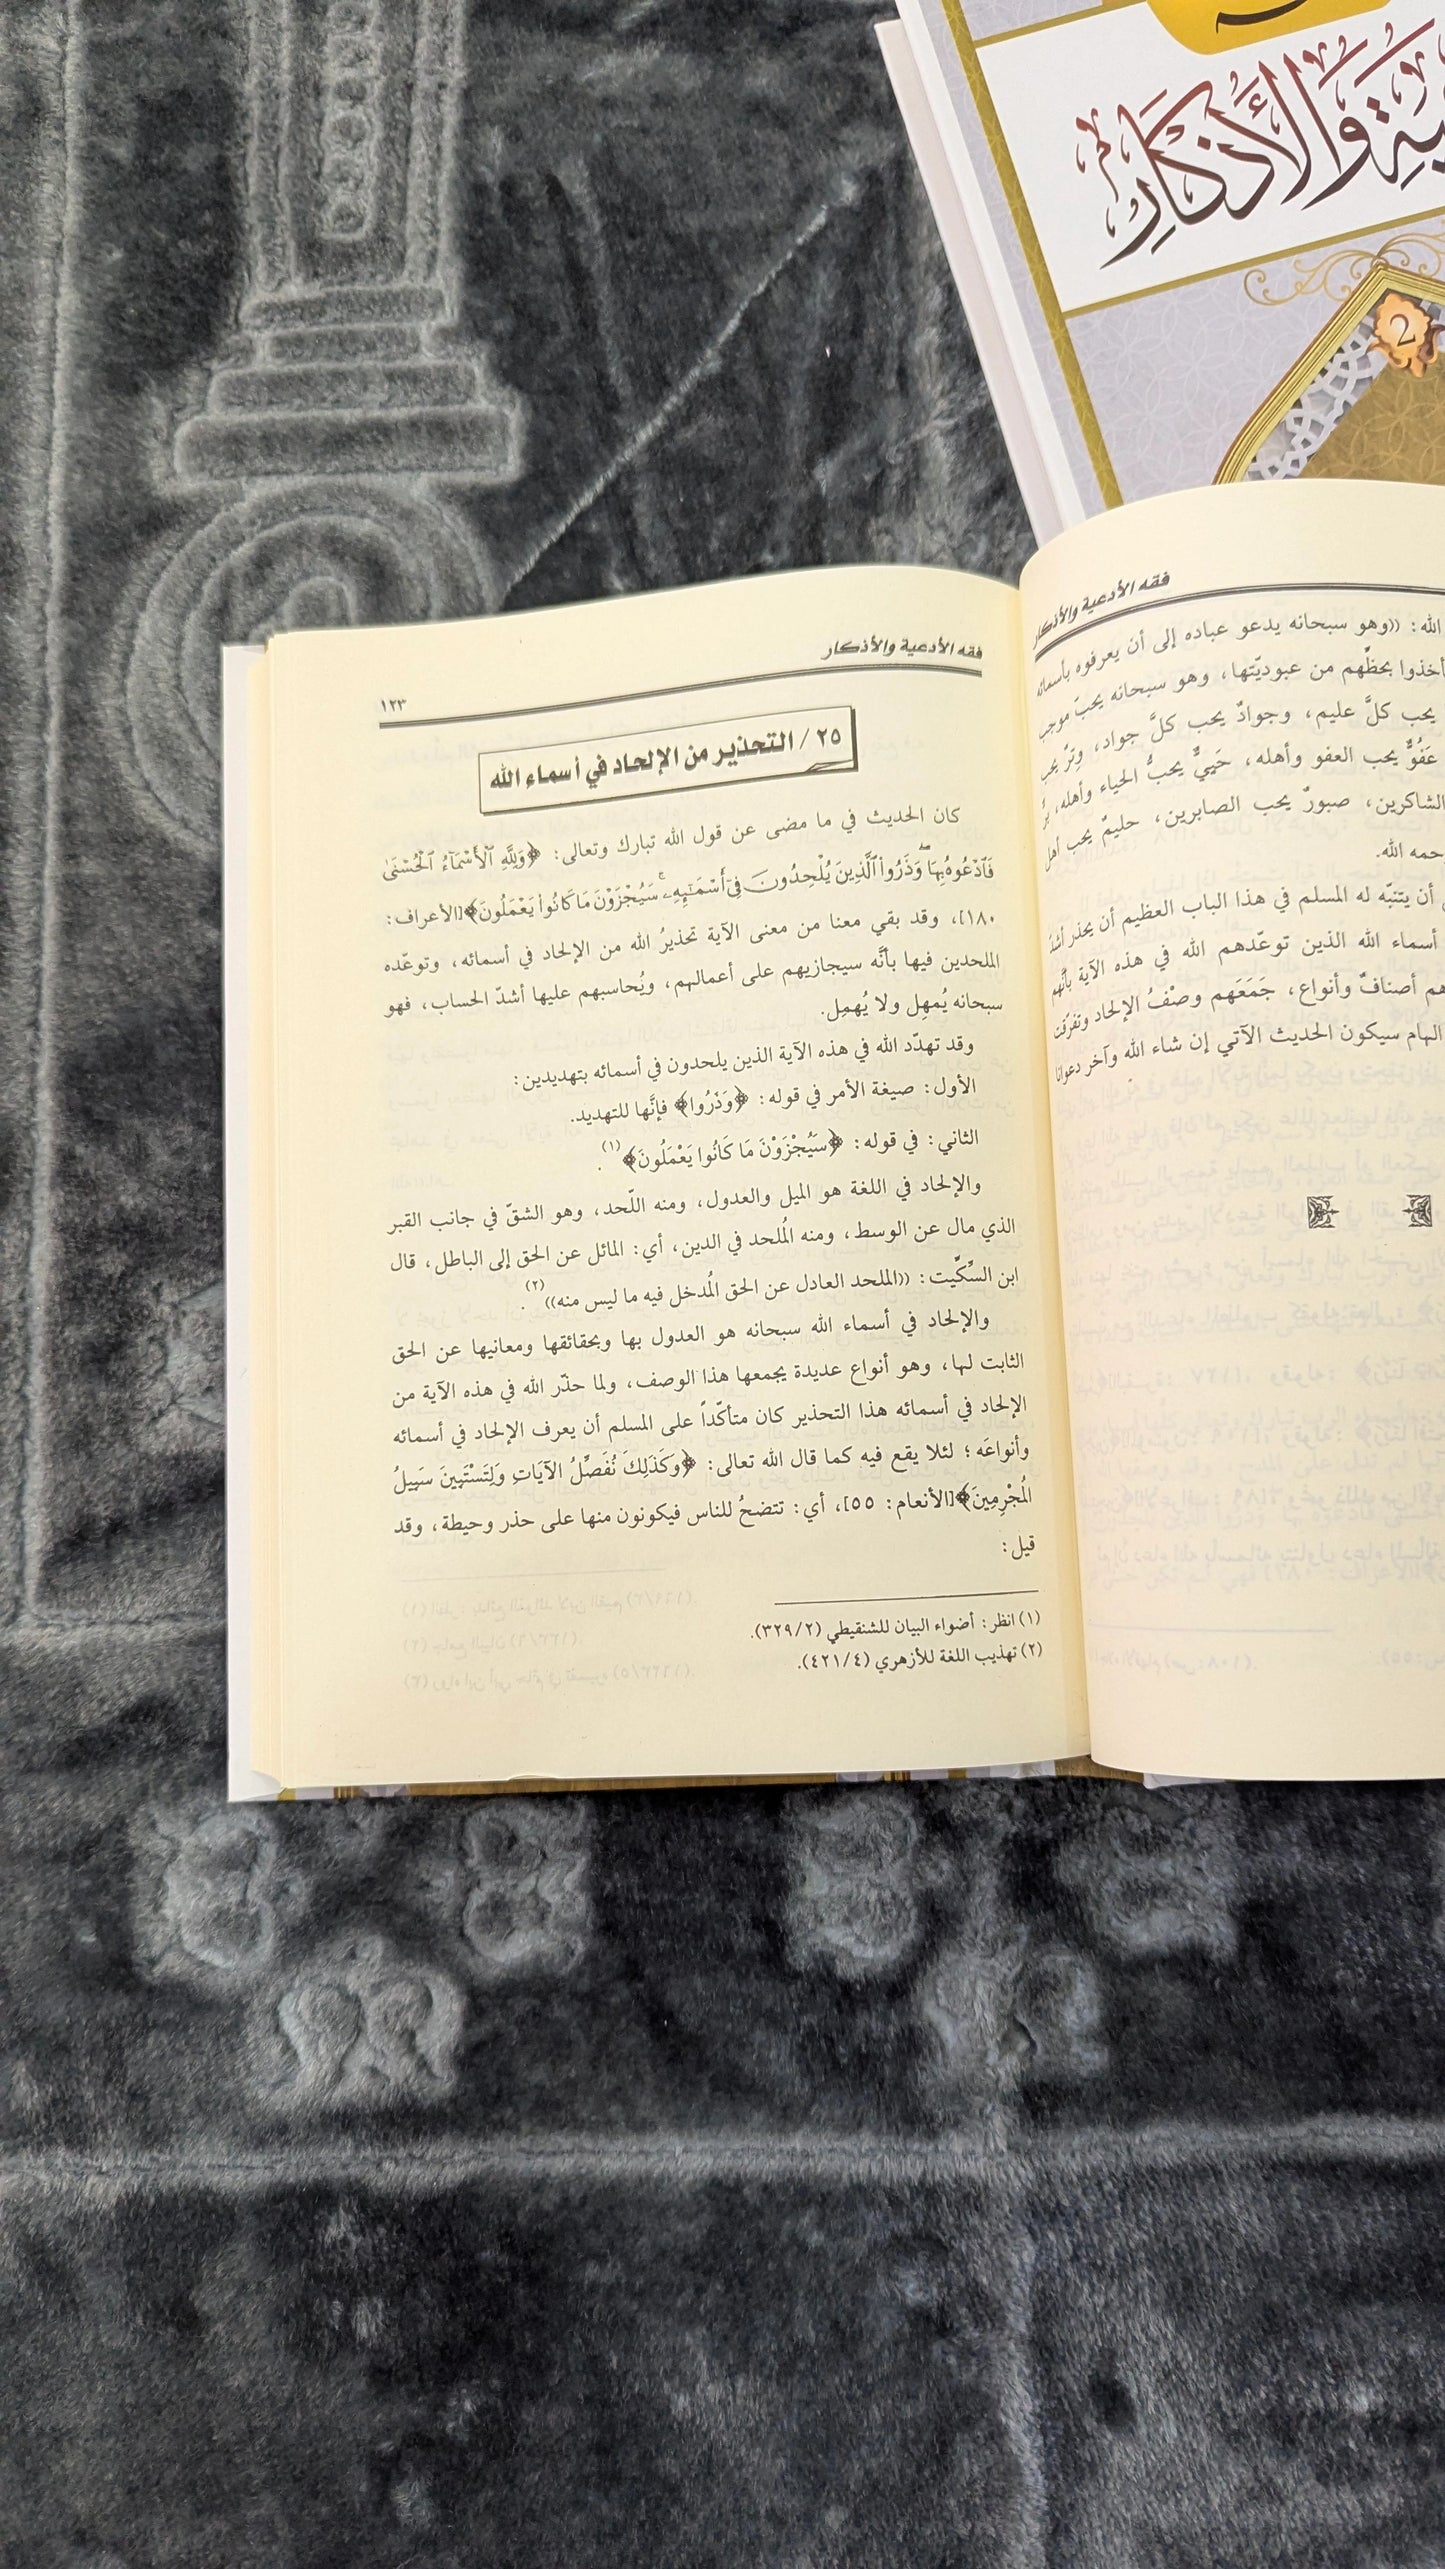 ـبية والأذكار
2
فقه الأدعية والأذكار
الله: ((وهو سبحانه يدعو عباده إلى أن يعرفوه بأسمائه
أخذوا بحظِّهم من عبوديّتها، وهو سبحانه يحبّ موجب
يحب كلَّ عليم، وجوادٌ يحب كلَّ جواد، وِترٌ يحب
عَفُوٌّ يحب العفو وأهله، حَيِيٌّ يحبُّ الحياء وأهله، برٌّ
الشاكرين، صبورٌ يحب الصابرين، حليمٌ يحب أهل
حمه الله.
أن يتنبّه له المسلم في هذا الباب العظيم أن يحذر أشدَّ
أسماء الله الذين توعّدهم الله في هذه الآية بأنَّهم
هم أصنافٌ وأنواع، جَمَعَهم وصْفُ الإلحاد وتفرَّقت
الهام سيكون الحديث الآتي إن شاء الله وآخر دعوانا
فقه الأدعية والأذكار
١٢٣
٢٥ / التحذير من الإلحاد في أسماء الله
كان الحديث في ما مضى عن قول الله تبارك وتعالى: ﴿وَلِلَّهِ ٱلْأَسْمَآءُ ٱلْحُسْنَىٰ
فَٱدْعُوهُ بِهَا ۖ وَذَرُوا۟ ٱلَّذِينَ يُلْحِدُونَ فِىٓ أَسْمَـٰٓئِهِۦ ۚ سَيُجْزَوْنَ مَا كَانُوا۟ يَعْمَلُونَ﴾[الأعراف:
١٨٠]، وقد بقي معنا من معنى الآية تحذيرُ الله من الإلحاد في أسمائه، وتوعّده
الملحدين فيها بأنَّه سيجازيهم على أعمالهم، ويُحاسبهم عليها أشدّ الحساب، فهو
سبحانه يُمهِل ولا يُهمِل.
وقد تهدّد الله في هذه الآية الذين يلحدون في أسمائه بتهديدين:
الأول: صيغة الأمر في قوله: ﴿وَذَرُوا﴾ فإنَّها للتهديد.
الثاني: في قوله: ﴿سَيُجْزَوْنَ مَا كَانُوا يَعْمَلُونَ﴾(١).
والإلحاد في اللغة هو الميل والعدول، ومنه اللّحد، وهو الشقّ في جانب القبر
الذي مال عن الوسط، ومنه الُملحد في الدين، أي: المائل عن الحق إلى الباطل، قال
ابن السِّكِّيت: ((الملحد العادل عن الحق الُمدخل فيه ما ليس منه))(٢).
والإلحاد في أسماء الله سبحانه هو العدول بها وبحقائقها ومعانيها عن الحق
الثابت لها، وهو أنواع عديدة يجمعها هذا الوصف، ولما حذّر الله في هذه الآية من
الإلحاد في أسمائه هذا التحذير كان متأكّداً على المسلم أن يعرف الإلحاد في أسمائه
وأنواعَه؛ لئلا يقع فيه كما قال الله تعالى: ﴿وَكَذَلِكَ نُفَصِّلُ الآيَاتِ وَلِتَسْتَبِينَ سَبِيلُ
الُمجْرِمِينَ﴾[الأنعام: ٥٥]، أي: تتضحُ للناس فيكونون منها على حذر وحيطة، وقد
قيل:
(١) انظر: أضواء البيان للشنقيطي (٣٢٩/٢).
(٢) تهذيب اللغة للأزهري (٤٢١/٤).